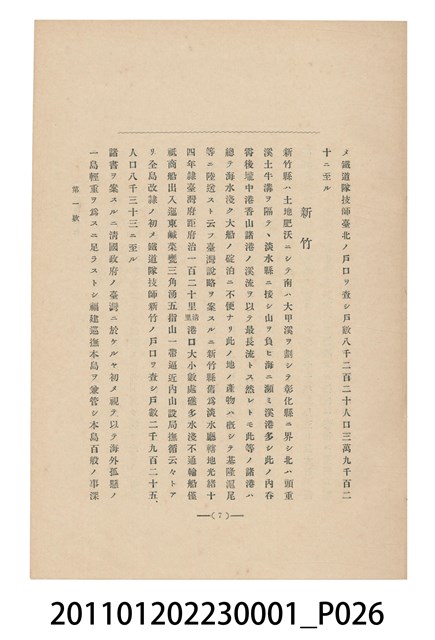 メ鐵道隊技師臺北ノ戸口ヲ查シ戸數八千二百二十人口三萬九千百二
十ニ至ル
新竹
新竹縣ハ土地肥沃ニシテ南ハ大甲溪ヲ劃シテ彰化縣ニ界シ北ハ頭重
溪土牛溝ヲ隔テヽ淡水縣ニ接シ山ヲ負ヒ海ニ瀕ミ溪港多シ此ノ內吞
霄後壠中港香山諸港ノ溪流ヲ以テ最長流トス然レトモ此等ノ諸港ハ
總テ海水淺ク大船ノ碇泊ニ不便ナリ此ノ地ノ產物ハ概シテ基隆滬尾
等ニ陸送スト云フ臺灣說略ヲ案スルニ新竹縣舊為淡水廳轄地光緒十
四年隸臺灣府距府治一百二十里清里港口大小數處礁多水淺不通輪船僅
祗商船出入迤東鹹菜甕三角湧五指山一帶逼近內山設局撫循云々トア
リ全島改隸ノ初メ鐵道隊技師新竹ノ戸口ヲ查シ戸數二千九百二十五、
人口八千三十三ニ至ル
諸書ヲ案スルニ清國政府ノ臺灣ニ於ケルヤ初メ視テ以テ海外孤懸ノ
一島輕重ヲ為スニ足ラストシ福建巡撫本島ヲ兼管シ本島百般ノ事深
第一款
(7)
201101202230001_P026